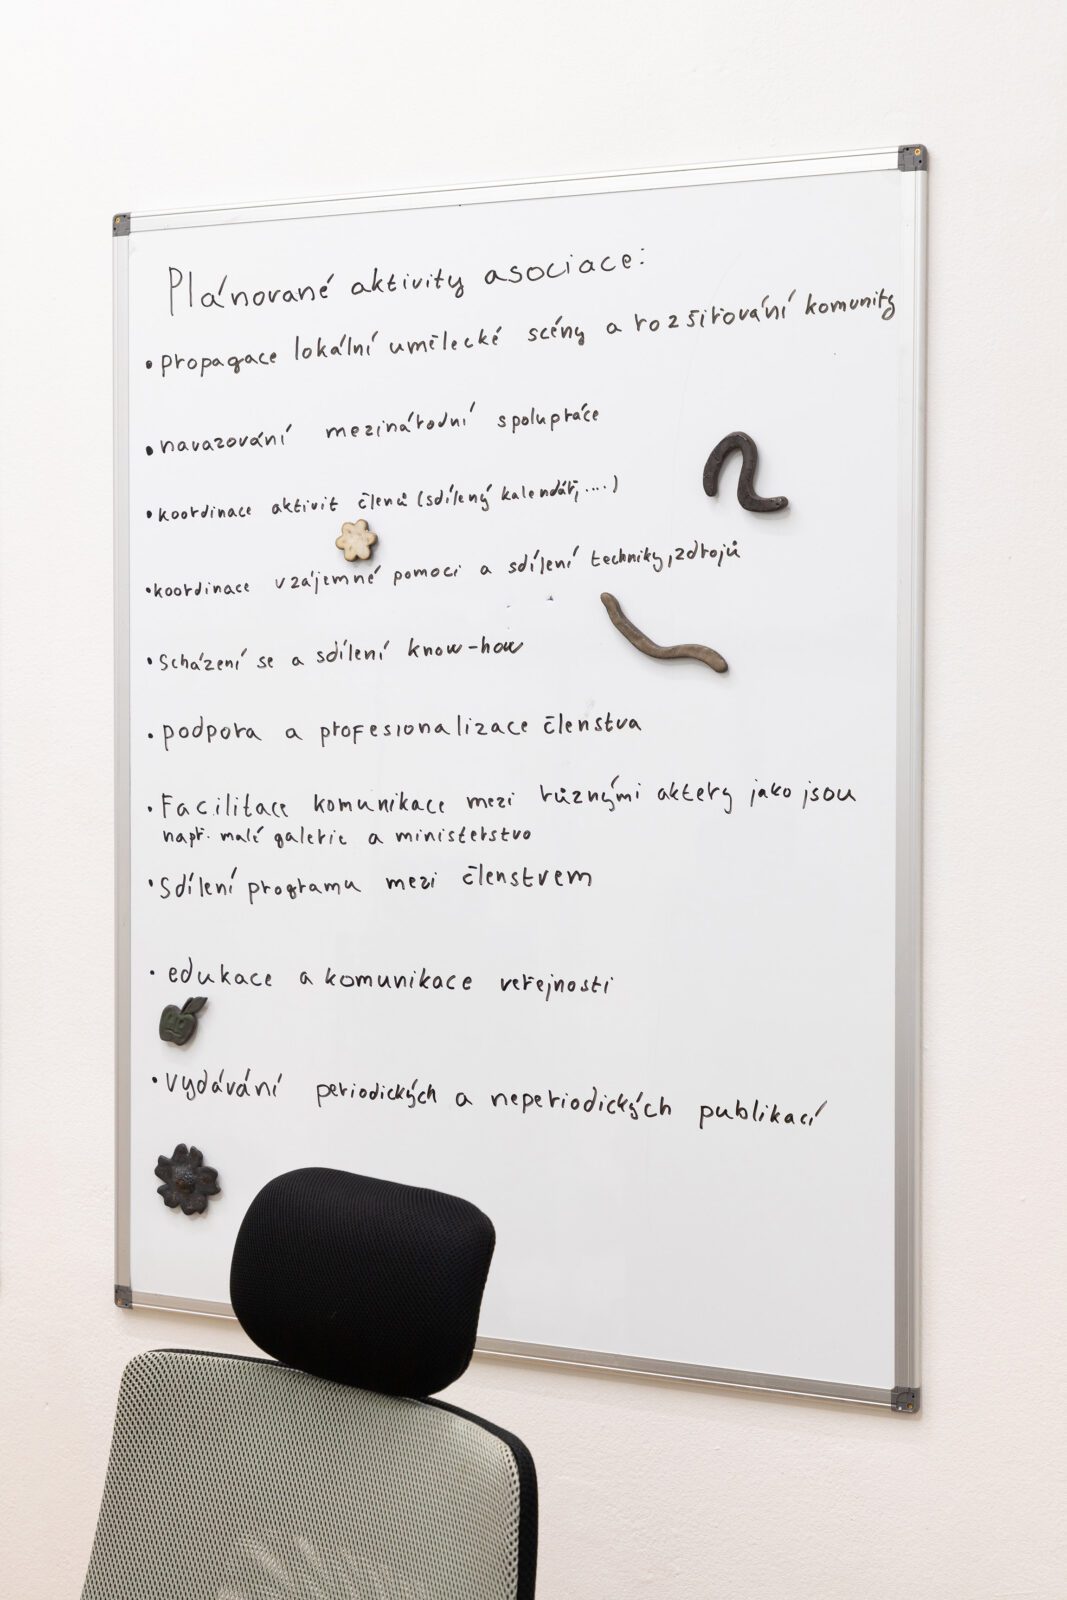 Plánované aktivity asociace:
• propagace lokální umělecké scény a rozšiřování komunity
• navazování mezinárodní spolupráce
• koordinace aktivit členů (sdílený kalendář, ....)
• koordinace vzájemné pomoci a sdílení techniky, zdrojů
• Scházení se a sdílení know-how
• podpora a profesionalizace členstva
• Facilitace komunikace mezi různými aktery jako jsou
např. malé galerie a ministerstvo
• Sdílení programu mezi členstvem
• edukace a komunikace veřejnosti
• vydávání periodických a neperiodických publikací